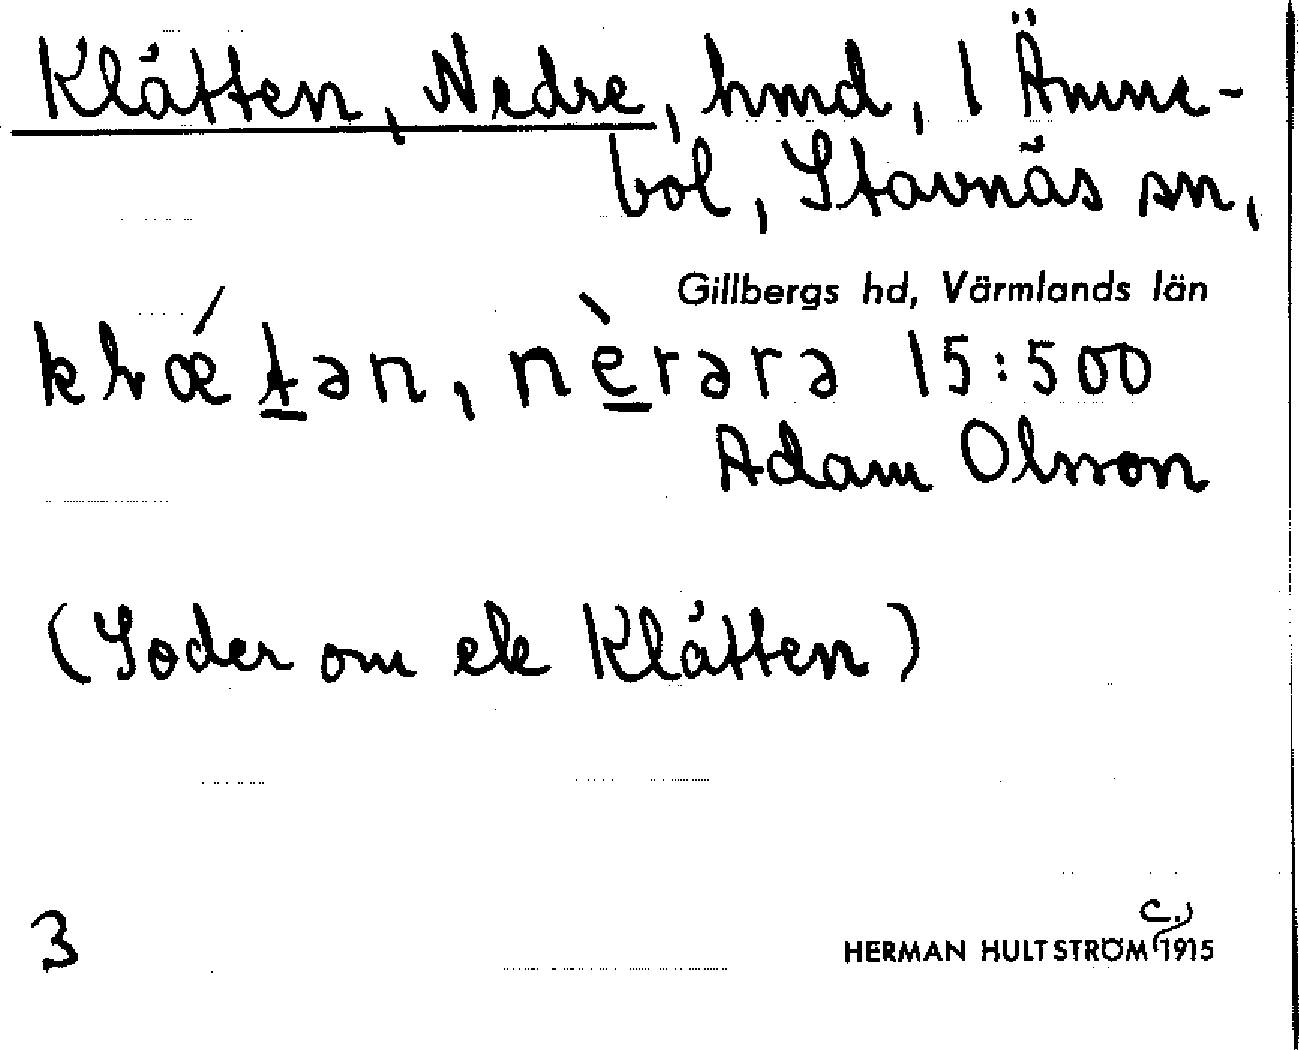 Klätten, Nedre, hmd, 1 Ämne-
bol, Stavnäs sn,
Gillbergs hd, Värmlands län
nèrərə 15:500
Adam Olsson
(Söder om ek Klätten)
3
HERMAN HULTSTRÖM (c.) 1915